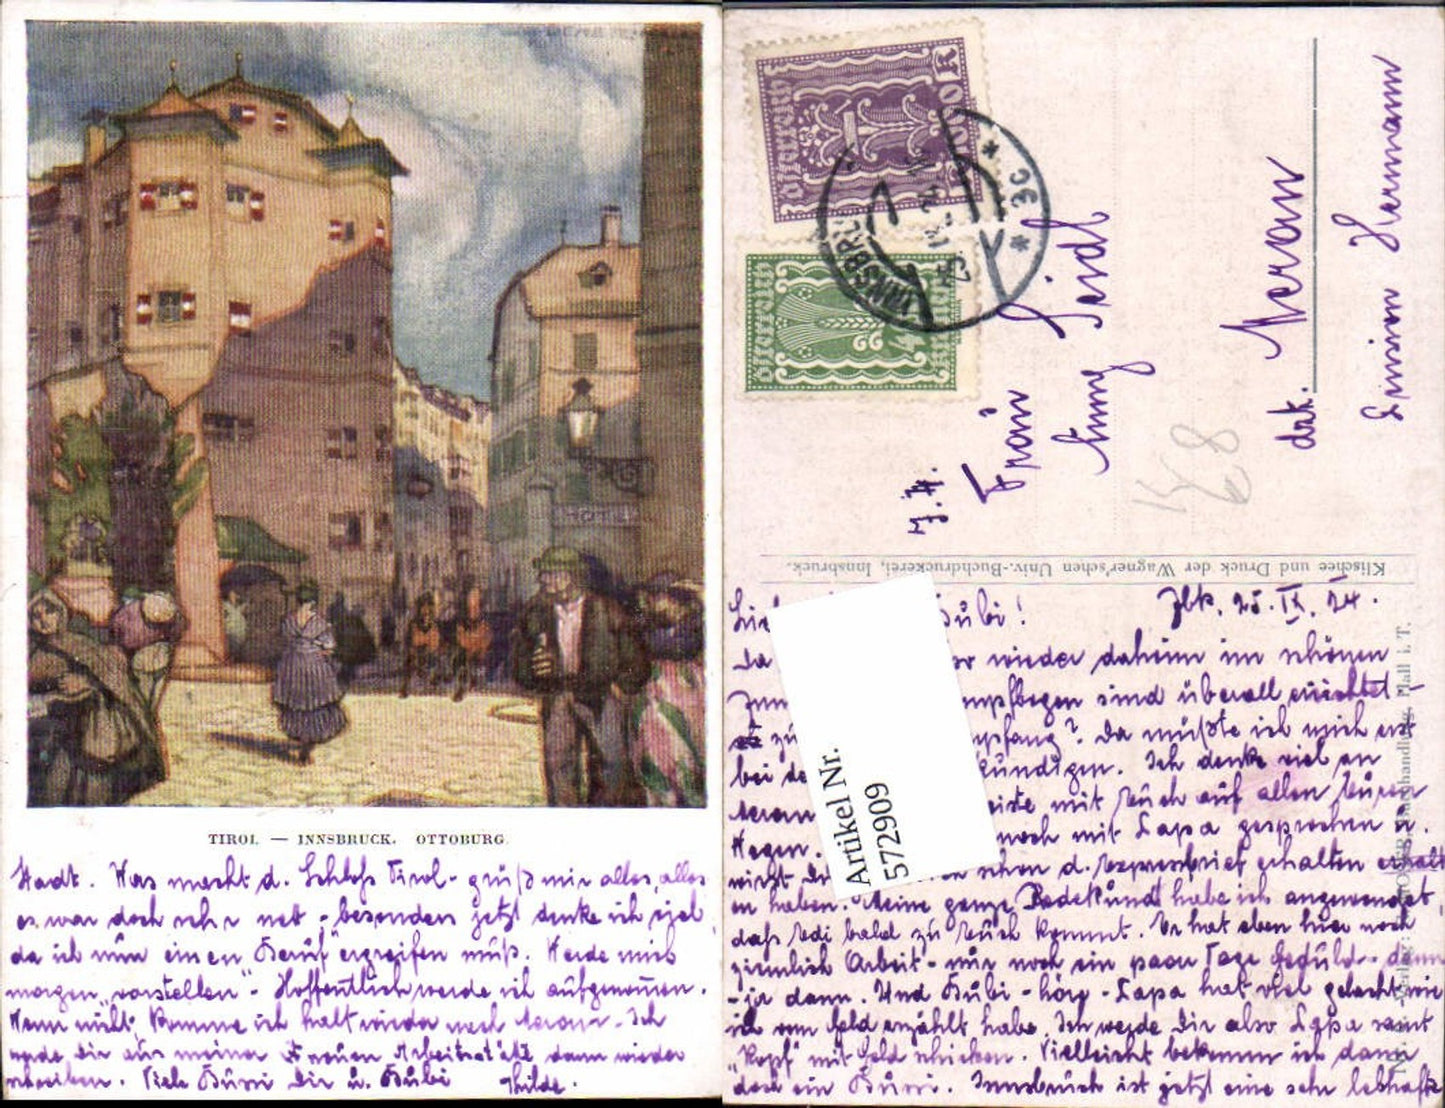 TIROL — INNSBRUCK. OTTOBURG.
Stadt. Was macht d. Schloß Tirol - grüß mir alles, alles
es war doch sehr nett - besonders jetzt denke ich viel,
da ich nun einen „Beruf" ergreifen muß. Werde mich
morgen „vorstellen" - Hoffentlich werde ich aufgenommen.
Wenn nicht, komme ich halt wieder nach Meran - Ich
werde Dir aus meiner neuen Arbeitsstätte dann wieder
schreiben. Viele Bussi Dir u. Bubi Thilde.
Österreich
Österreich
INNSBRUCK
* 3c *
25.IX.24
Frau
Emmy Seidl
Meran
Pension Hermann
K8
Klischee und Druck der Wagner'schen Univ.-Buchdruckerei, Innsbruck.
Artikel Nr.
572909
Bubi! Ibk, 25.IX.24.
Da wieder daheim im schönen
sind überall errichtet -
zu Da müßte ich mich erst
bei kündigen. Ich denke viel an
Meran mit Euch auf allen Euren
Wegen. noch mit Papa gesprochen u.
wirst Di schon d. Expressbrief erhalten
haben. Meine ganze Redekunst habe ich angewendet,
dass Edi bald zu Euch kommt. Er hat eben hier noch
ziemlich Arbeit - nur noch ein paar Tage Geduld - dann
- ja dann. Und Bubi - hör - Papa hat viel gelacht wie
ich vom Geld erzählt habe. Ich werde Dir also Papa samt
„Kopf" mit Geld schicken. Vielleicht bekomme ich dann
doch ein Bussi. Innsbruck ist jetzt eine sehr lebhafte
Hall i. T.